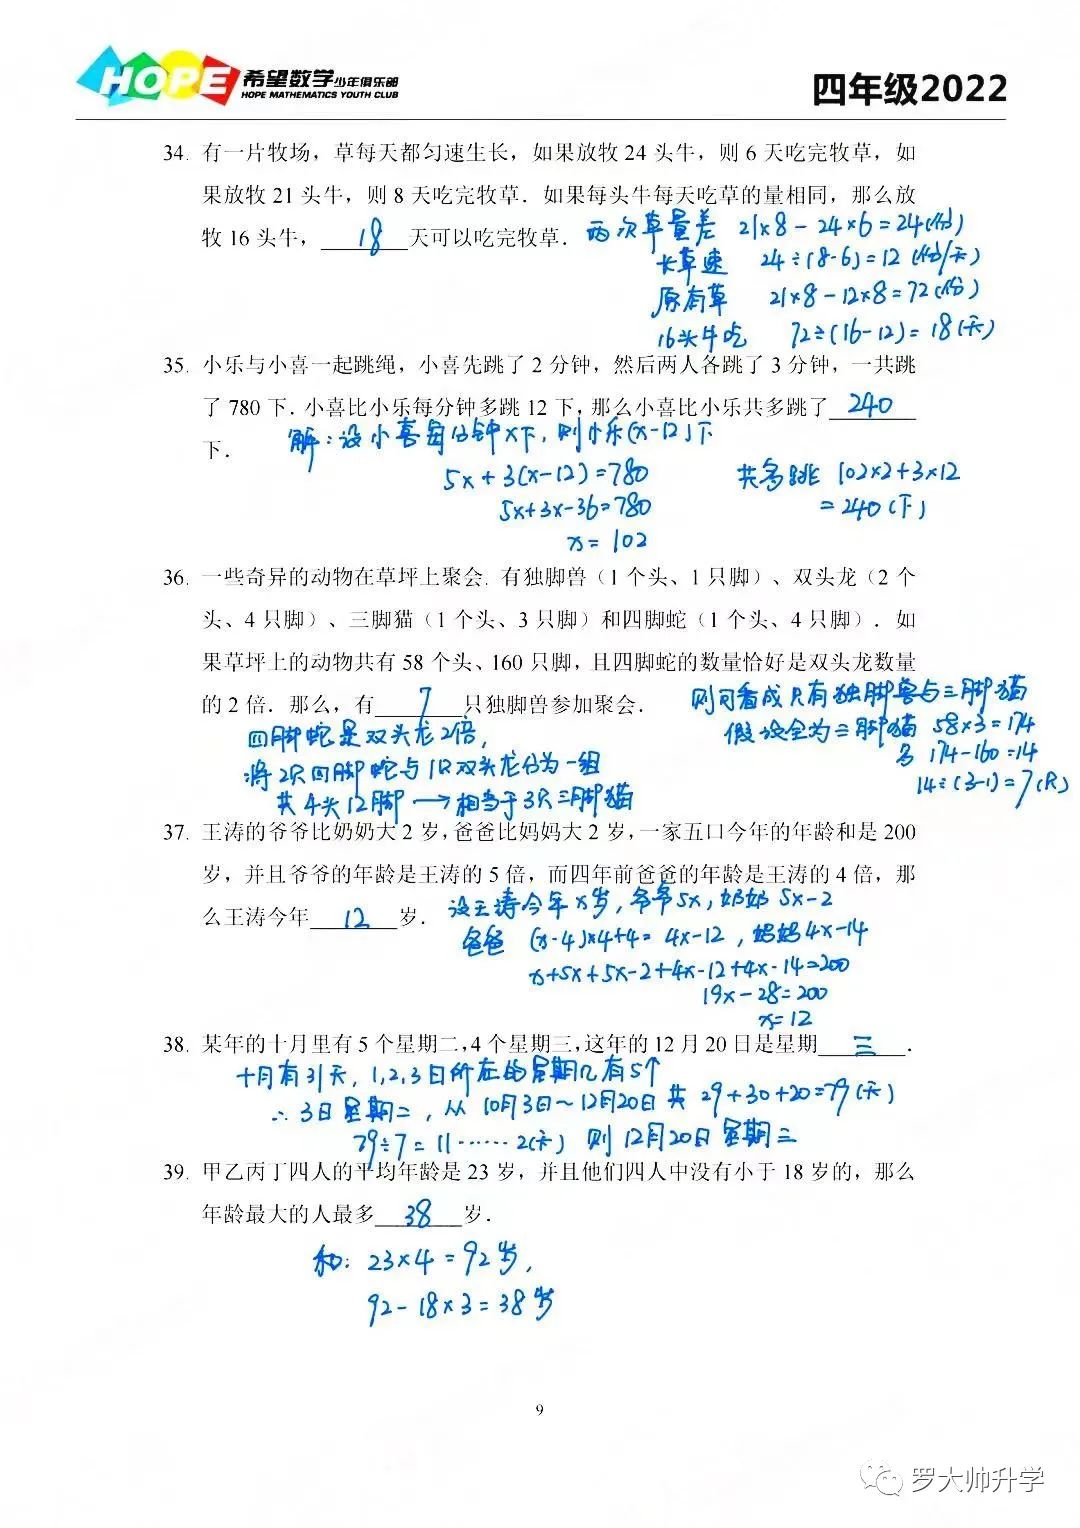 HOPE 希望数学少年俱乐部
HOPE MATHEMATICS YOUTH CLUB
四年级2022
34. 有一片牧场，草每天都匀速生长，如果放牧 24 头牛，则 6 天吃完牧草，如
果放牧 21 头牛，则 8 天吃完牧草．如果每头牛每天吃草的量相同，那么放
牧 16 头牛，18天可以吃完牧草．
两次草量差 21×8－24×6=24(份)
长草速 24÷(8-6)=12 (份/天)
原有草 21×8－12×8=72(份)
16头牛吃 72÷(16-12)=18(天)
35. 小乐与小喜一起跳绳，小喜先跳了 2 分钟，然后两人各跳了 3 分钟，一共跳
了 780 下．小喜比小乐每分钟多跳 12 下，那么小喜比小乐共多跳了240
下．
解：设小喜每分钟x下，则小乐(x-12)下
5x+3(x-12)=780
5x+3x-36=780
x=102
共多跳 102×2+3×12
=240(下)
36. 一些奇异的动物在草坪上聚会．有独脚兽（1 个头、1 只脚）、双头龙（2 个
头、4 只脚）、三脚猫（1 个头、3 只脚）和四脚蛇（1 个头、4 只脚）．如
果草坪上的动物共有 58 个头、160 只脚，且四脚蛇的数量恰好是双头龙数量
的 2 倍．那么，有7只独脚兽参加聚会．
四脚蛇是双头龙2倍，
将2只四脚蛇与1只双头龙分为一组
共4头12脚→相当于3只三脚猫
则可看成只有独脚兽与三脚猫
假设全为三脚猫 58×3=174
多 174-160=14
14÷(3-1)=7(只)
37. 王涛的爷爷比奶奶大 2 岁，爸爸比妈妈大 2 岁，一家五口今年的年龄和是 200
岁，并且爷爷的年龄是王涛的 5 倍，而四年前爸爸的年龄是王涛的 4 倍，那
么王涛今年12岁．
设王涛今年x岁，爷爷5x，奶奶5x-2
爸爸 (x-4)×4+4=4x-12，妈妈4x-14
x+5x+5x-2+4x-12+4x-14=200
19x-28=200
x=12
38. 某年的十月里有 5 个星期二，4 个星期三，这年的 12 月 20 日是星期三．
十月有31天，1,2,3日所在的星期几有5个
∴3日星期二，从10月3日~12月20日共29+30+20=79(天)
79÷7=11……2(天) 则12月20日星期三
39. 甲乙丙丁四人的平均年龄是 23 岁，并且他们四人中没有小于 18 岁的，那么
年龄最大的人最多38岁．
和：23×4=92岁，
92-18×3=38岁
9
罗大帅升学